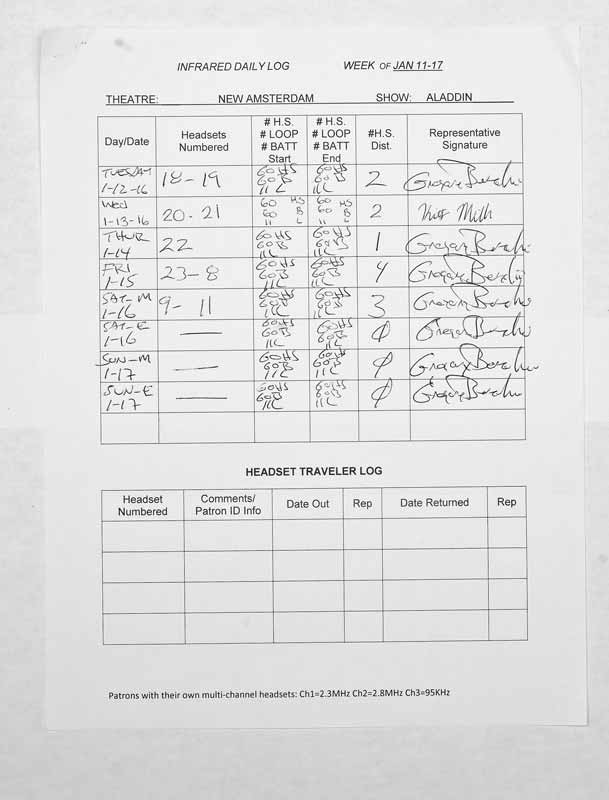 INFRARED DAILY LOG WEEK OF JAN 11-17
THEATRE: NEW AMSTERDAM SHOW: ALADDIN
Day/Date
Headsets
Numbered
# H.S.
# LOOP
# BATT
Start
# H.S.
# LOOP
# BATT
End
#H.S.
Dist.
Representative
Signature
TUESDAY
1-12-16
18-19
60HS
60B
11L
60HS
60B
11L
2
WED
1-13-16
20-21
60 HS
60 B
11 L
60 HS
60 B
11 L
2
THUR
1-14
22
60HS
60B
11L
60HS
60B
11L
1
FRI
1-15
23-8
60HS
60B
11L
60HS
60B
11L
4
SAT-M
1-16
9-11
60HS
60B
11L
60HS
60B
11L
3
SAT-E
1-16
—
60HS
60B
11L
60HS
60B
11L
0
SUN-M
1-17
—
60HS
60B
11L
60HS
60B
11L
0
SUN-E
1-17
—
60HS
60B
11L
60HS
60B
11L
0
HEADSET TRAVELER LOG
Headset
Numbered
Comments/
Patron ID Info
Date Out
Rep
Date Returned
Rep
Patrons with their own multi-channel headsets: Ch1=2.3MHz Ch2=2.8MHz Ch3=95KHz